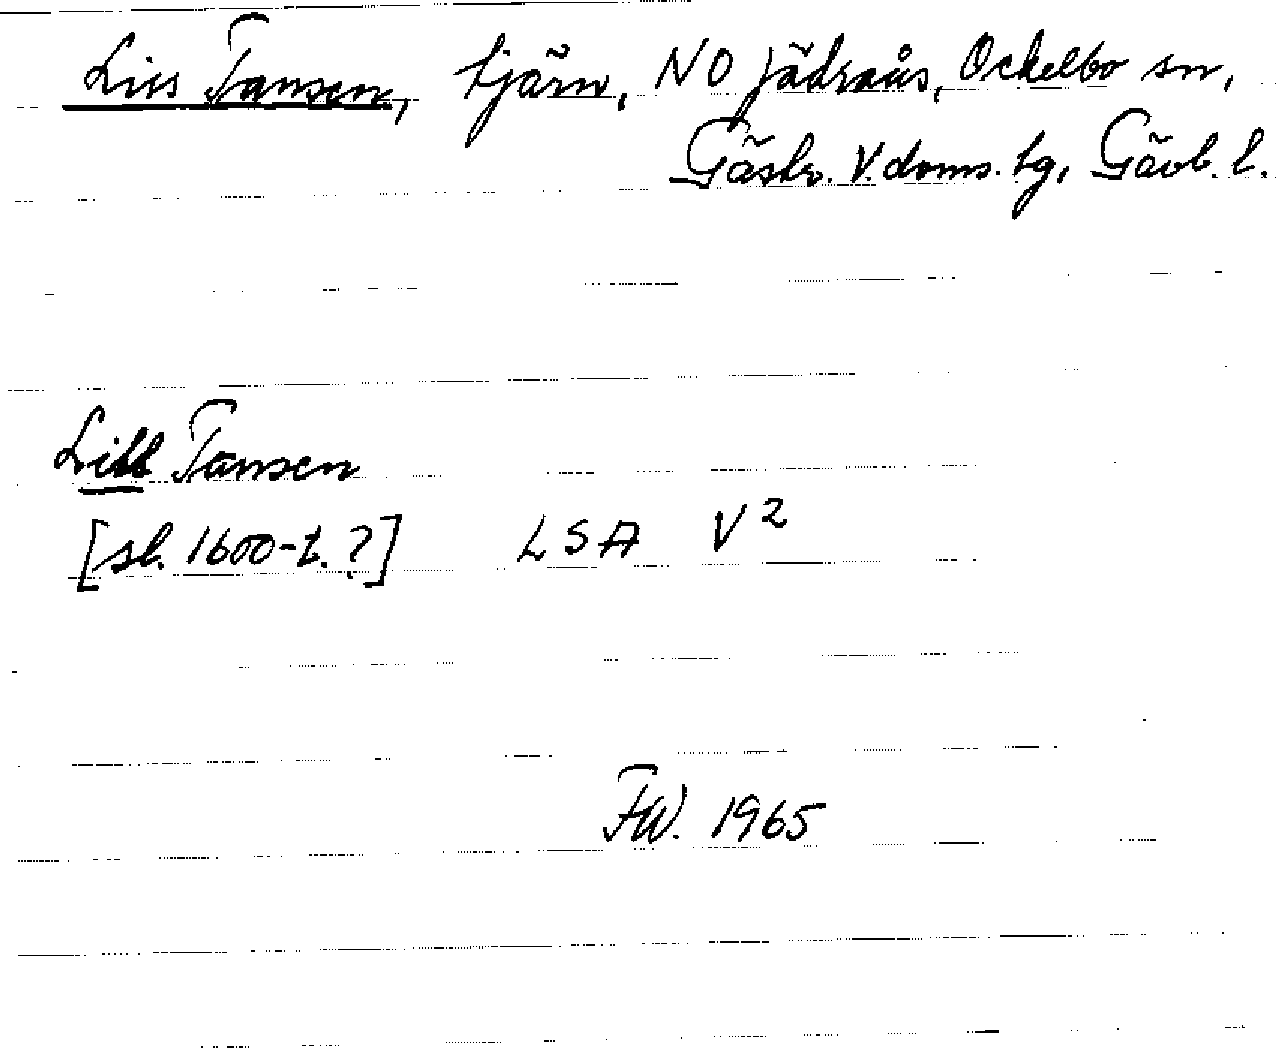 Liss Tansen, tjärn, NO Jädraås, Ockelbo sn,
Gästr. V. doms. tg, Gävleb. l.
Lill Tansen
[sl. 1600-t.?] LSA V²
FW. 1965